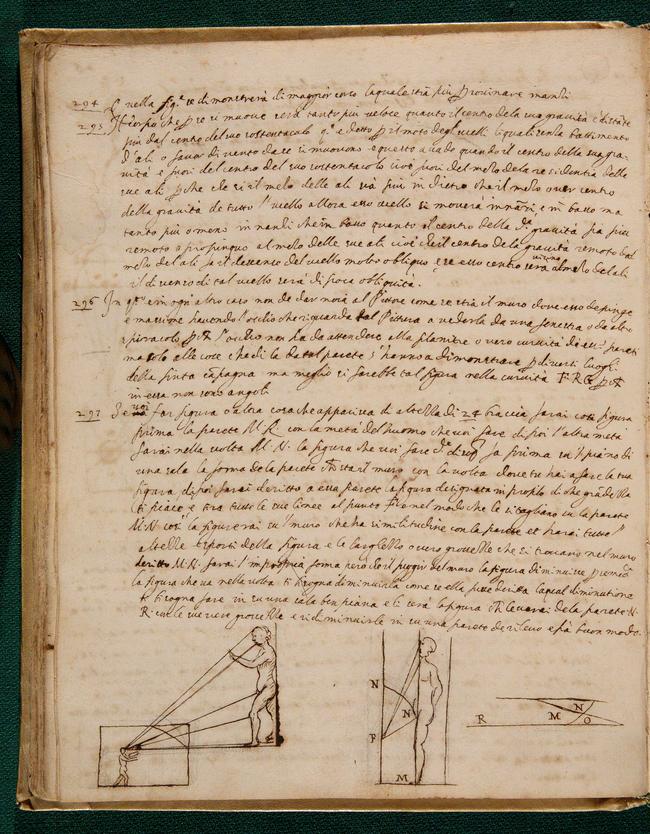 294 nella si dimostrerà di maggior corso la quale stia più
295 Il corpo che per se si muove sarà tanto più veloce quanto il centro della sua gravità è distante
più dal centro del suo sostentacolo è detto per il moto degli uccelli li quali senza battimento
d'ali o favor di vento da se si muovono e questo accade quando il centro della sua gra-
vità è fuori del centro del suo sostentacolo cioè fuori del mezo della residentia delle
sue ali perche se il mezo delle ali sia più in dietro che il mezo over centro
della gravità de tutto l'uccello allora esso uccello si moverà innanzi, e in basso ma
tanto più o meno innanzi che in basso quanto il centro della gravità fia più
remoto o propinquo al mezo delle sue ali cioè che il centro della gravità remoto dal
mezo del ali fa il descenso del uccello molto obliquo e se esso centro sarà vicino al mezo del ali
il discenso di tal uccello sarà di poca obliquità.
296 In ogni altro caso non da dar noia al Pittore come se stia il muro dove esso depinge
e massime havendo l'ochio che riguarda tal Pittura a vederla da una fenestra o da altro
spiracolo l'ochio non ha da attendere alla planitie o vero curvità di essi pareti
ma solo alle cose che di la da tal parete s'hanno a dimostrare per diversi luoghi
della finta campagna ma meglio si farebbe tal figura nella curvità F.R.G.
in essa non sono angoli
297 Se vuoi far figura o altra cosa che apparisca di altezza di 24 braccia farai cosi figura
prima la parete M.R. con la metà del huomo che vuoi fare di poi l'altra metà
farai nella volta M.N. la figura che vuoi fare fa prima su'l piano di
una sala la forma della parete che sta il muro con la volta dove tu hai a fare la tua
figura, di poi farai deritto a essa parete la figura designata in profilo di che grandezza
ti piace e tira tutte le sue linee al punto F. e nel modo che le si tagliano su la parete
M.N. cosi la figurerai su'l muro che ha similitudine con la parete et harai tutte
altezze e sporti della figura e le larghezze overo grossezze che si trovano nel muro
deritto M.N. farai l'impropria forma però che il fuggir del muro la figura diminuisce
la figura che va nella volta ti bisogna diminuirla come se ella fusse deritta la qual diminutione
ti bisogna fare in su una sala ben piana e li sarà la figura che leverai dela parete N.
R. con le sue vere grossezze e ridiminuirle in su una parete de rilievo e fia buon modo.
N
N
F
M
R
M
N
O